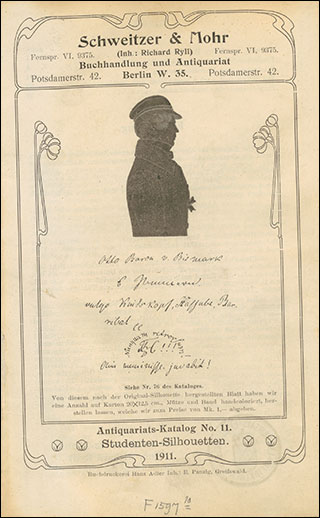 Schweitzer & Mohr
(Inh.: Richard Ryll)
Fernspr. VI. 9375.
Fernspr. VI. 9375.
Buchhandlung und Antiquariat
Potsdamerstr. 42.
Berlin W. 35.
Potsdamerstr. 42.
Otto Baron v. Bismark
vulgo Kindskopf,
Siehe Nr. 56 des Kataloges.
Von diesem nach der Original-Silhouette hergestellten Blatt haben wir
eine Anzahl auf Karton 20X12,5 cm., Mütze und Band handcoloriert, her-
stellen lassen, welche wir zum Preise von Mk. 1,— abgeben.
Antiquariats-Katalog No. 11.
Studenten-Silhouetten.
1911.
Buchdruckerei Hans Adler Inh.: E. Panzig, Greifswald.
F 1597